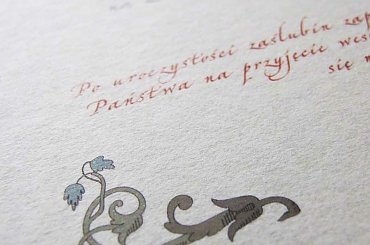 Po uroczystości zaślubin zap
Państwa na przyjęcie wes
się